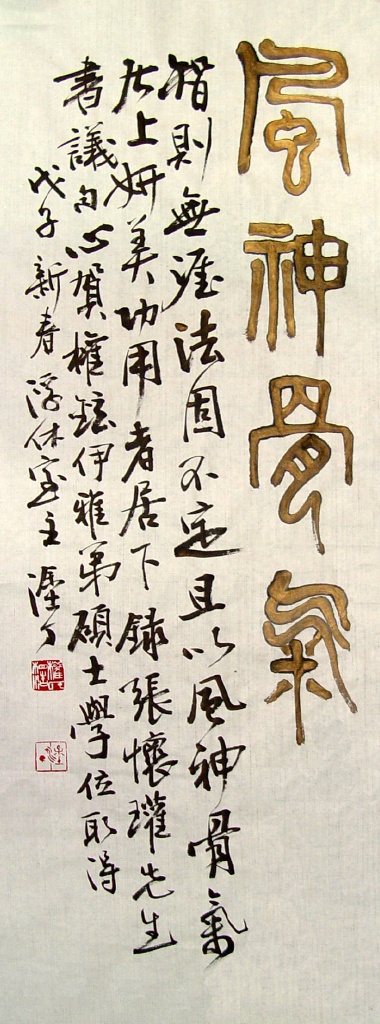 風神骨氣
智則無涯法固不定且以風神骨氣
居上妍美功用者居下錄張懷瓘先生
書議句心賀權鉉伊雅弟碩士學位取得
戊子新春浮休室主